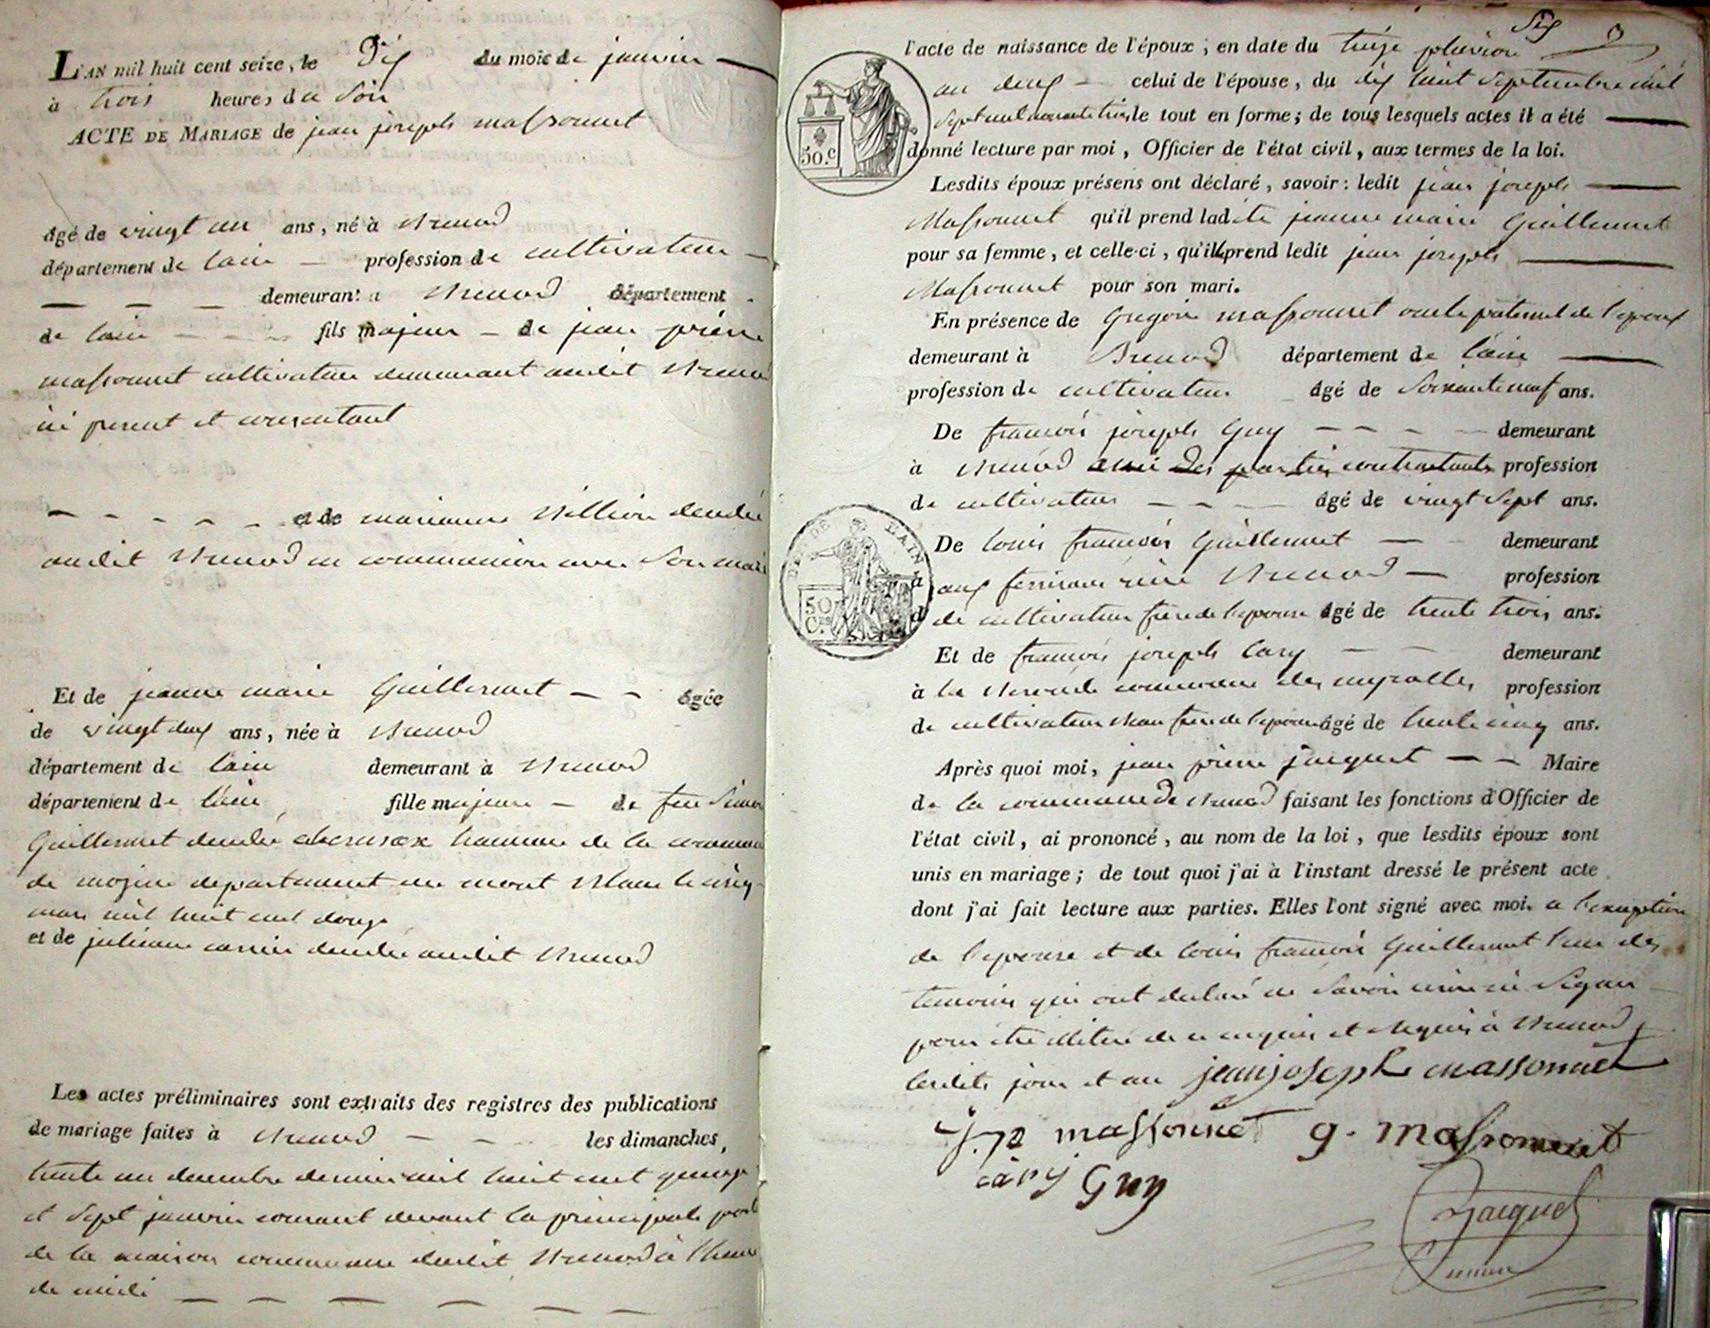 L'AN mil huit cent seize, le Dix du mois de janvier
à trois heures du Soir
ACTE DE MARIAGE de jean joseph massonnet
âgé de vingt un ans, né à Brenod
département de lain profession de cultivateur
demeurant a Brenod département
de lain fils majeur de jean pierre
massonnet cultivateur demeurant audit Brenod
ici present et consentant
et de marianne Billion decedée
audit Brenod en communion avec Son mari
Et de jeanne marie Guillermet âgée
de vingt deux ans, née à Brenod
département de lain demeurant à Brenod
département de lain fille majeure de feu Simon
Guillermet decedé hameau de la commune
de departement du mont Blanc le cinq
mars mil huit cent douze
et de julienne carrier decedée audit Brenod
Les actes préliminaires sont extraits des registres des publications
de mariage faites à Brenod les dimanches,
trente un decembre dernier mil huit cent quinze
et Sept janvier courant devant la principale porte
de la maison commune dudit Brenod à l'heure
de midi
Dix
l'acte de naissance de l'époux, en date du treize pluviose
an deux celui de l'épouse, du dix huit Septembre mil
Sept cent nonante trois le tout en forme; de tous lesquels actes il a été
donné lecture par moi, Officier de l'état civil, aux termes de la loi.
50.c
Lesdits époux présens ont déclaré, savoir: ledit jean joseph
Massonnet qu'il prend ladite jeanne marie Guillermet
pour sa femme, et celle-ci, qu'ille prend ledit jean joseph
Massonnet pour son mari.
En présence de Gregoire massonnet oncle paternel de l'epoux
demeurant à Brenod département de lain
profession de cultivateur âgé de Soixante neuf ans.
De francois joseph Guy demeurant
à Brenod ami des parties contractantes profession
de cultivateur âgé de vingt Sept ans.
DE L'AIN
50 C.
De louis francois Guillermet demeurant
à aux rière Brenod profession
de cultivateur frere de l'epouse âgé de trente trois ans.
Et de francois joseph Cary demeurant
à la commune des neyrolles profession
de cultivateur Beau frere de l'epouse âgé de trente cinq ans.
Après quoi moi, jean pierre jacquet Maire
de la commune de Brenod faisant les fonctions d'Officier de
l'état civil, ai prononcé, au nom de la loi, que lesdits époux sont
unis en mariage; de tout quoi j'ai à l'instant dressé le présent acte
dont j'ai fait lecture aux parties. Elles l'ont signé avec moi. a l'exception
de l'epouse et de louis francois Guillermet l'un des
temoins qui ont declaré ne Savoir ecrire ni Signer
pour être de ce enquis et requis à Brenod
lesdits jour et an jean joseph massonnet
J. p massonnet g. massonnet
cary Guy
Jacquet
maire